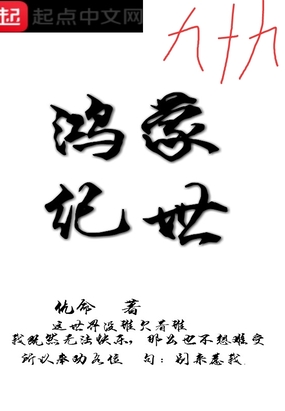 起 起点中文网
九十九
鸿蒙
纪世
仇命 著
这世界没谁欠着谁
我既然无法快乐，那么也不想难受
所以奉劝各位 句：别来惹我